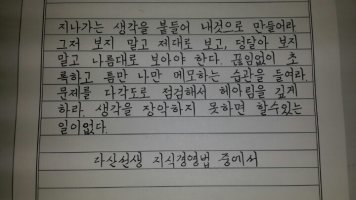 지나가는 생각을 붙들어 내것으로 만들어라
그저 보지 말고 제대로 보고, 덩달아 보지
말고 나름대로 보아야 한다. 끊임없이 초
록하고 틈만 나면 메모하는 습관을 들여라.
문제를 다각도로 점검해서 헤아림을 깊게
하라. 생각을 장악하지 못하면 할수있는
일이없다.
다산선생 지식경영법 중에서